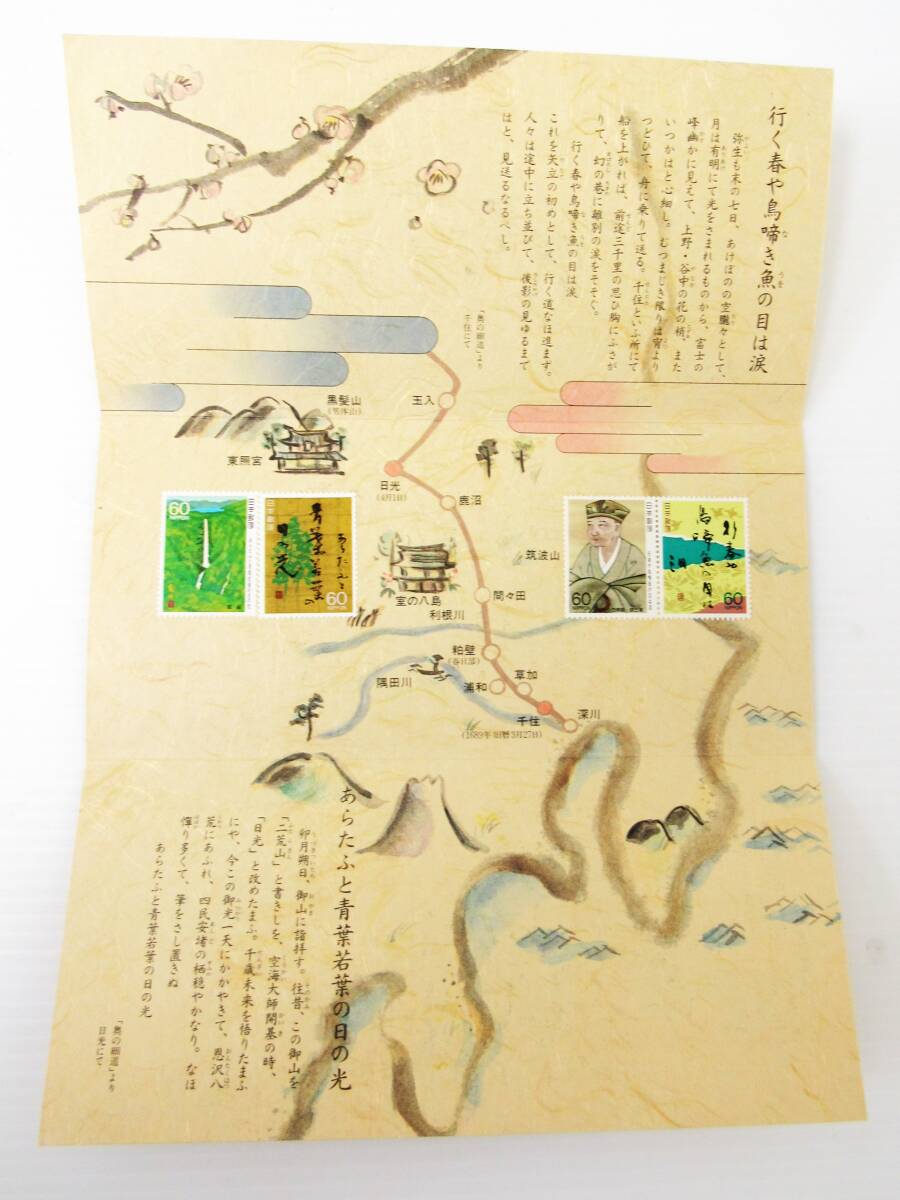 行く春や鳥啼き魚の目は涙
弥生も末の七日、あけぼのの空朧々として、
月は有明にて光をさまれるものから、富士の
峰幽かに見えて、上野・谷中の花の梢、また
いつかはと心細し。むつまじき限りは宵より
つどひて、舟に乗りて送る。千住といふ所にて
船を上がれば、前途三千里の思ひ胸にふさが
りて、幻の巷に離別の涙をそそぐ。
行く春や鳥啼き魚の目は涙
これを矢立の初めとして、行く道なほ進まず。
人々は途中に立ち並びて、後影の見ゆるまで
はと、見送るなるべし。
「奥の細道」より
千住にて
黒髪山
(男体山)
玉入
東照宮
日光
(4月1日)
鹿沼
筑波山
室の八島
間々田
利根川
粕壁
(春日部)
隅田川
浦和
草加
千住
(1689年旧暦3月27日)
深川
60
日本郵便
NIPPON
日本郵便
あらたふと
青葉若葉の
日の光
60
NIPPON
日本郵便
60
NIPPON
日本郵便
行春や
鳥啼魚の目は
泪
60
NIPPON
あらたふと青葉若葉の日の光
卯月朔日、御山に詣拝す。往昔、この御山を
「二荒山」と書きしを、空海大師開基の時、
「日光」と改めたまふ。千歳未来を悟りたまふ
にや、今この御光一天にかかやきて、恩沢八
荒にあふれ、四民安堵の栖穏やかなり。なほ
憚り多くて、筆をさし置きぬ
あらたふと青葉若葉の日の光
「奥の細道」より
日光にて